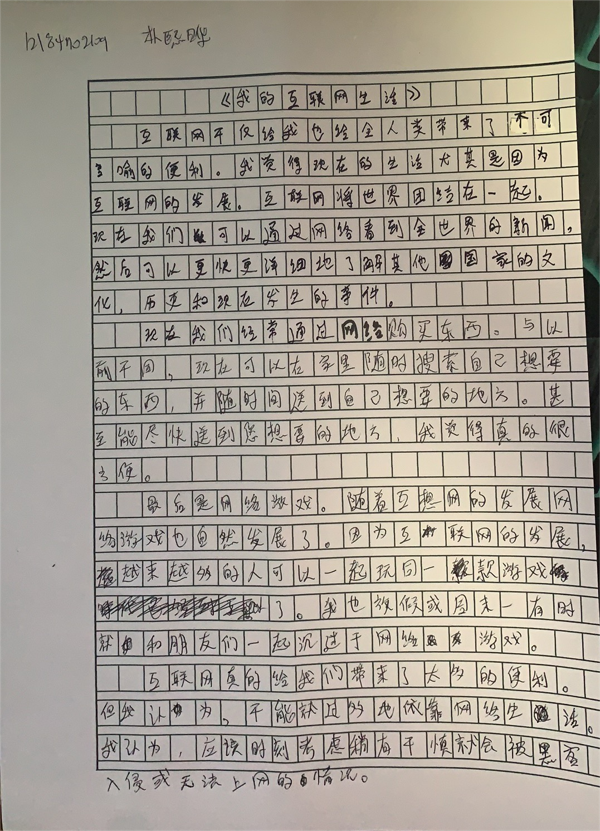 朴熙晔
《我的互联网生活》
互联网不仅给我也给全人类带来了不可
言喻的便利。我觉得现在的生活尤其是因为
互联网的发展。互联网将世界团结在一起。
现在我们可以通过网络看到全世界的新闻，
然后可以更快更详细地了解其他国家的文
化，历史和现在发生的事件。
现在我们经常通过网络购买东西。与以
前不同，现在可以在家里随时搜索自己想要
的东西，并随时间送到自己想要的地方。甚
至能尽快送到您想要的地方，我觉得真的很
方便。
最后是网络游戏。随着互想网的发展网
络游戏也自然发展了。因为互联网的发展，
越来越多的人可以一起玩同一款游戏
了。我也放假或周末一有时
就和朋友们一起沉迷于网络游戏。
互联网真的给我们带来了太多的便利。
但我认为，不能就过多地依靠网络生活。
我认为，应该时刻考虑稍有不慎就会被黑客
入侵或无法上网的情况。